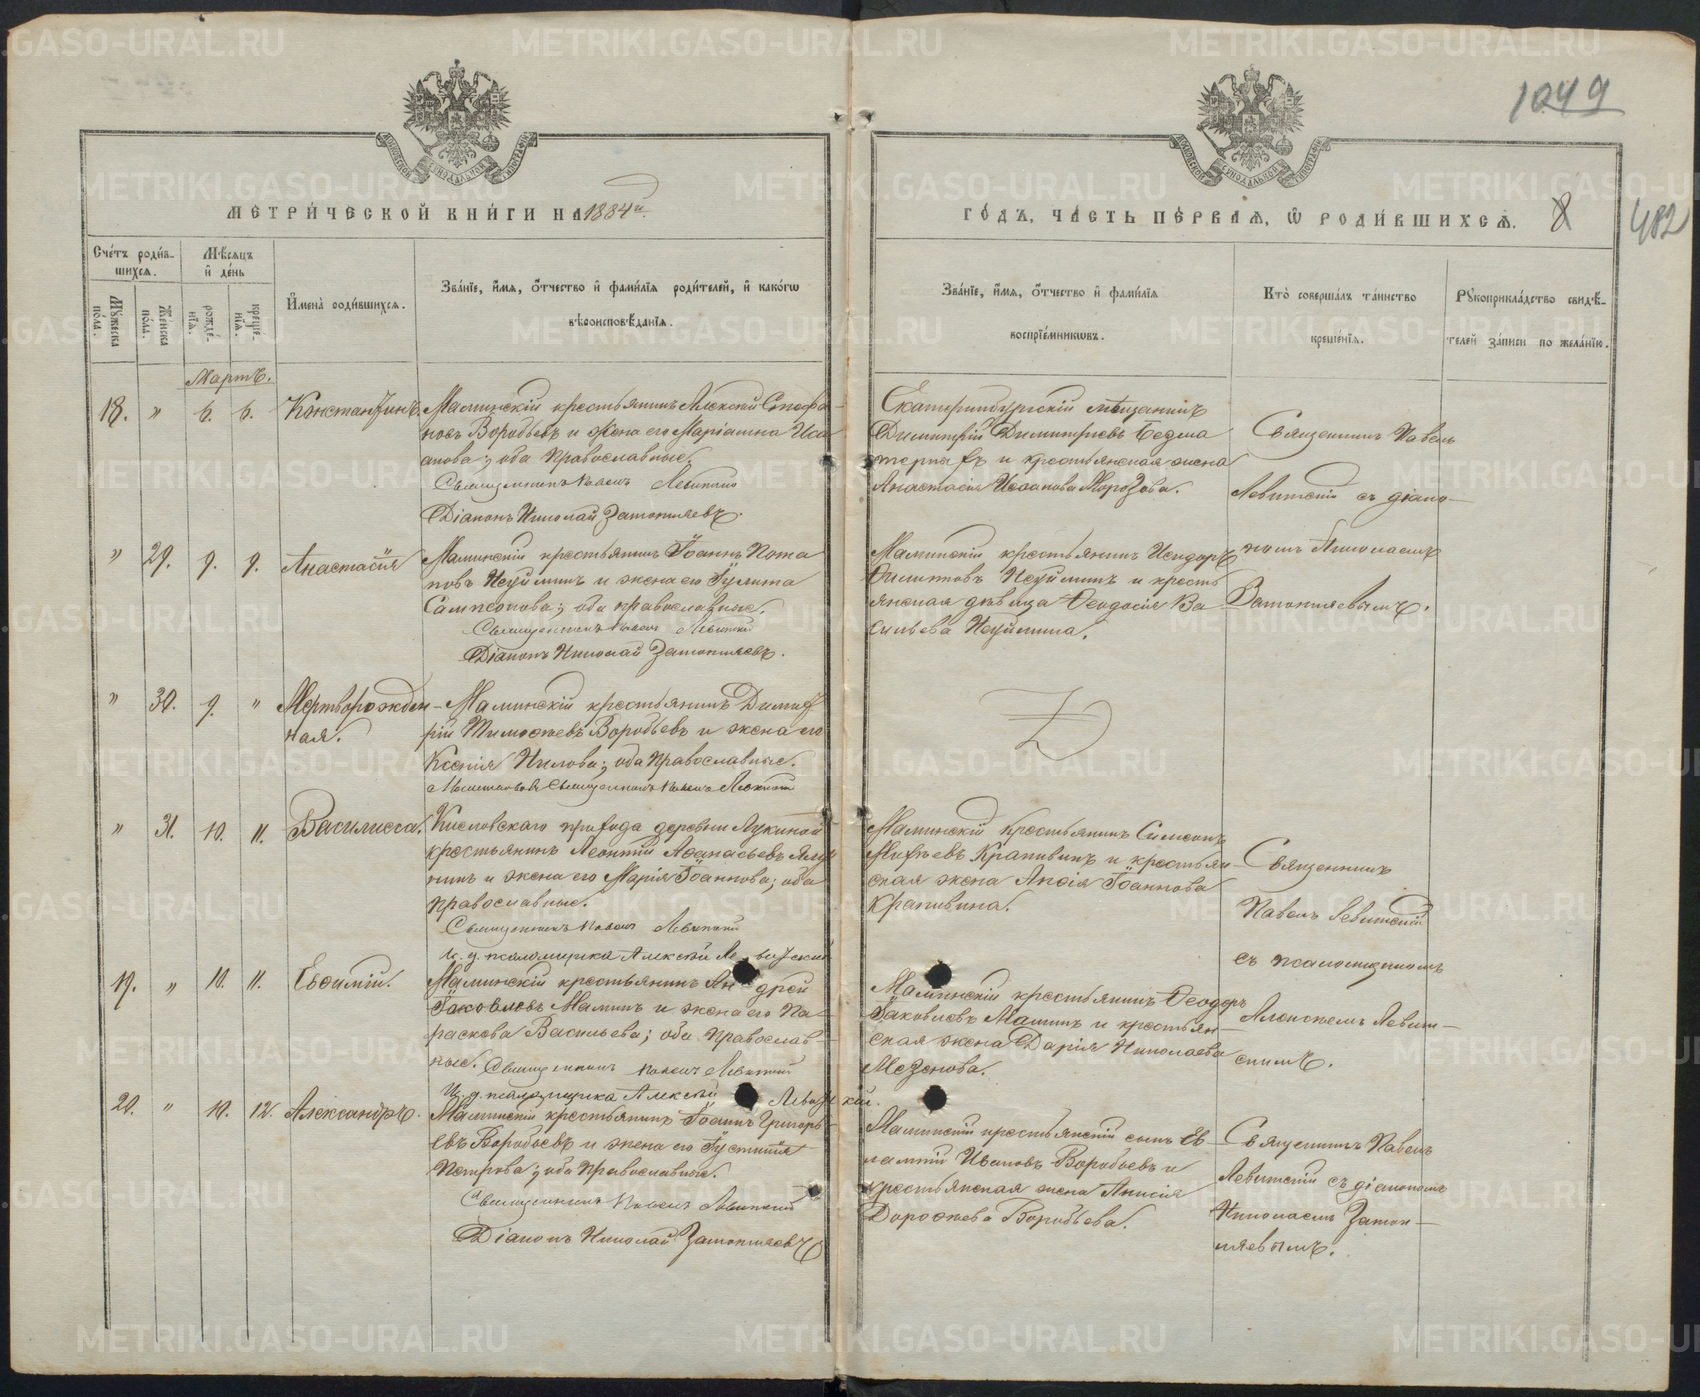 1049
482
МЕТРИЧЕСКОЙ КНИГИ НА 1884й.
ГОДЪ, ЧАСТЬ ПЕРВАЯ, Ѡ РОДИВШИХСЯ. 8
Счетъ родив-
шихся.
Мѣсяцъ
и день
Мужеска
пола.
Женска
пола.
рожде-
нія.
креще-
нія.
Имена родившихся.
Званіе, имя, отчество и фамилія родителей, и какогѡ
вѣроисповѣданія.
Званіе, имя, отчество и фамилія
воспріемникѡвъ.
Кто совершалъ таинство
крещенія.
Рукоприкладство свидѣ-
телей записи по желанію.
Мартъ.
18. " 6. 6. Константинъ.
Маминскій крестьянинъ Алексѣй Стефа-
новъ Воробьевъ и жена его Маріамна Иса-
акова; оба православные.
Священникъ Павелъ Левитскій
Діаконъ Николай Затопляевъ.
Екатеринбургскій мѣщанинъ
Димитрій Димитріевъ Бедма-
терныхъ и крестьянская жена
Анастасія Исаакова Морозова.
Священникъ Павелъ
Левитскій съ діако-
номъ Николаемъ
Затопляевымъ.
" 29. 9. 9. Анастасія
Маминскій крестьянинъ Іоаннъ Пота-
повъ Неуйминъ и жена его Іулита
Сампсонова; оба православные.
Священникъ Павелъ Левитскій
Діаконъ Николай Затопляевъ.
Маминскій крестьянинъ Исидоръ
Филипповъ Неуйминъ и кресть-
янская дѣвица Ѳеодосія Ва-
сильева Неуймина.
" 30. 9. " Мертворожден-
ная.
Маминскій крестьянинъ Димит-
рій Тимоѳеевъ Воробьевъ и жена его
Ксенія Нилова; оба православные.
Священникъ Павелъ Левитскій
" 31. 10. 11. Василисса.
Кисловскаго прихода деревни Лукиной
крестьянинъ Леонтій Аѳанасьевъ
и жена его Марія Іоаннова; оба
православные.
Священникъ Павелъ Левитскій
И. д. псаломщика Алексѣй Левитскій
Маминскій крестьянинъ Симеонъ
Михѣевъ Крапивинъ и крестьян-
ская жена Анѳія Іоаннова
Крапивина.
Священникъ
Павелъ Левитскій
съ псаломщикомъ
Алексѣемъ Левит-
скимъ.
19. " 10. 11. Евѳимій.
Маминскій крестьянинъ Андрей
Іаковлевъ Маминъ и жена его Па-
раскева Васильева; оба православ-
ные. Священникъ Павелъ Левитскій
И. д. псаломщика Алексѣй Левитскій.
Маминскій крестьянинъ Ѳеодоръ
Іаковлевъ Маминъ и крестьян-
ская жена Дарія Николаева
Мезенова.
20. " 10. 12. Александръ.
Маминскій крестьянинъ Іоаннъ Григорь-
евъ Воробьевъ и жена его Іустинія
Петрова; оба православные.
Священникъ Павелъ Левитскій
Діаконъ Николай Затопляевъ
Маминскій крестьянскій сынъ Ев-
лампій Ивановъ Воробьевъ и
крестьянская жена Анисія
Дороѳеева Воробьева.
Священникъ Павелъ
Левитскій съ діакономъ
Николаемъ Затоп-
ляевымъ.